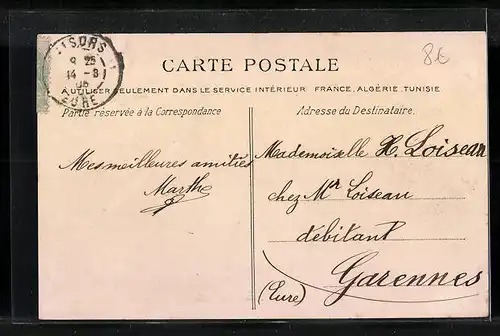 GISORS
9 25
14 - 8
05
EURE
8€
CARTE POSTALE
A UTILISER SEULEMENT DANS LE SERVICE INTÉRIEUR FRANCE, ALGÉRIE, TUNISIE
Partie réservée à la Correspondance
Adresse du Destinataire.
Mes meilleures amitiés
Marthe
Mademoiselle H. Loiseau
chez Mr Loiseau
débitant
Garennes
(Eure)